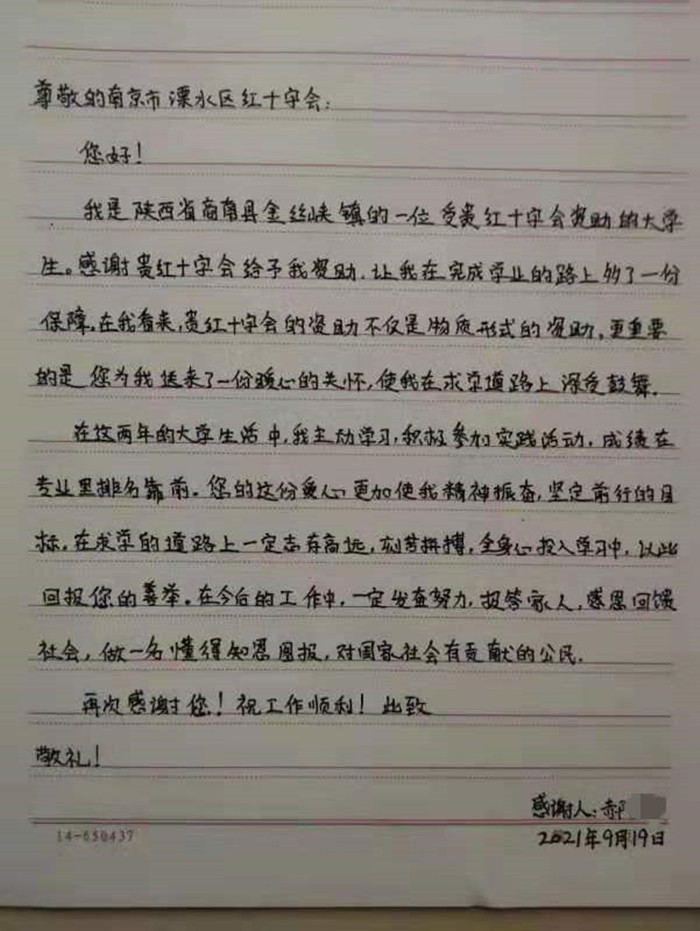 尊敬的南京市溧水区红十字会:
您好!
我是陕西省商南县金丝峡镇的一位受贵红十字会资助的大学
生。感谢贵红十字会给予我资助,让我在完成学业的路上多了一份
保障。在我看来,贵红十字会的资助不仅是物质形式的资助,更重要
的是您为我送来了一份暖心的关怀,使我在求学道路上深受鼓舞。
在这两年的大学生活中,我主动学习,积极参加实践活动,成绩在
专业里排名靠前。您的这份爱心更加使我精神振奋,坚定前行的目
标。在求学的道路上一定志存高远,刻苦拼搏,全身心投入学习中,以此
回报您的善举。在今后的工作中,一定发奋努力,报答家人,感恩回馈
社会,做一名懂得知恩图报,对国家社会有贡献的公民。
再次感谢您!祝工作顺利!此致
敬礼!
感谢人:郝
2021年9月19日
14-650437